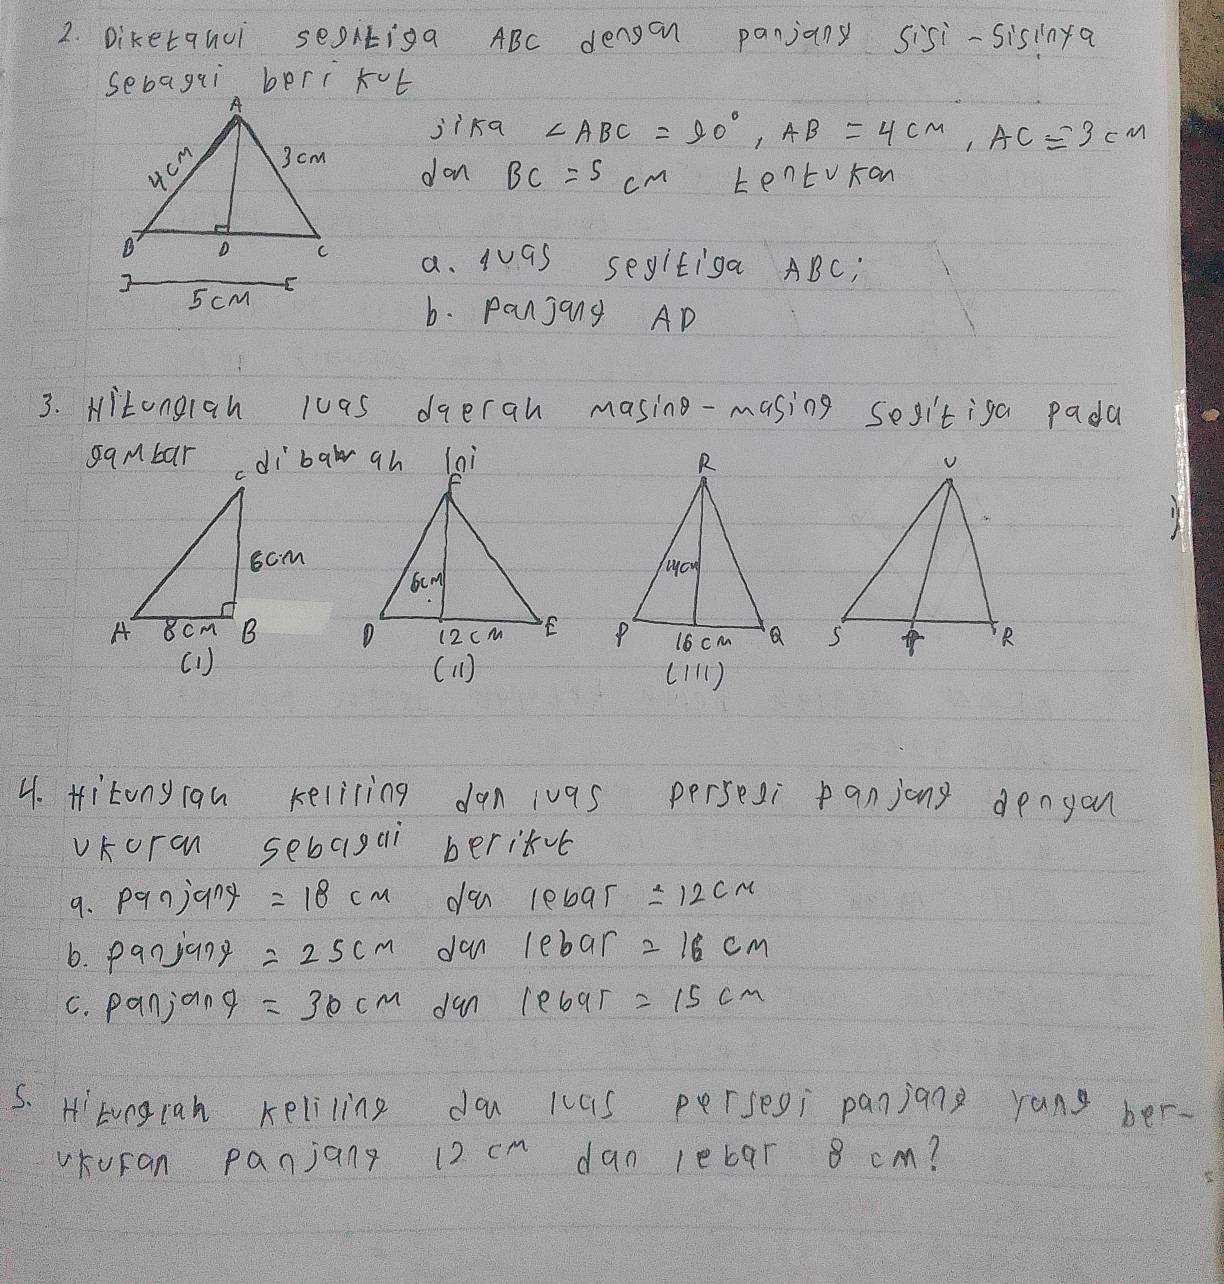 2. Diketahui segitiga ABC dengan panjang sisi-sisinya
sebagai berikut
A
jika ∠ABC = 90°, AB = 4 cm, AC = 3 cm
4cm 3cm
dan BC = 5 cm tentukan
B D C
a. luas segitiga ABC;
5cm
b. panjang AD
3. Hitunglah luas daerah masing-masing segitiga pada
gambar dibawah ini
C F R U
6cm 6cm
A 8cm B D 12cm E P 16cm Q S R
(I) (II) (III)
4. Hitunglah keliling dan luas persegi panjang dengan
ukuran sebagai berikut
a. panjang = 18 cm dan lebar = 12cm
b. panjang = 25cm dan lebar = 16 cm
c. panjang = 30 cm dan lebar = 15 cm
5. Hitunglah keliling dan luas persegi panjang yang ber-
ukuran panjang 12 cm dan lebar 8 cm?